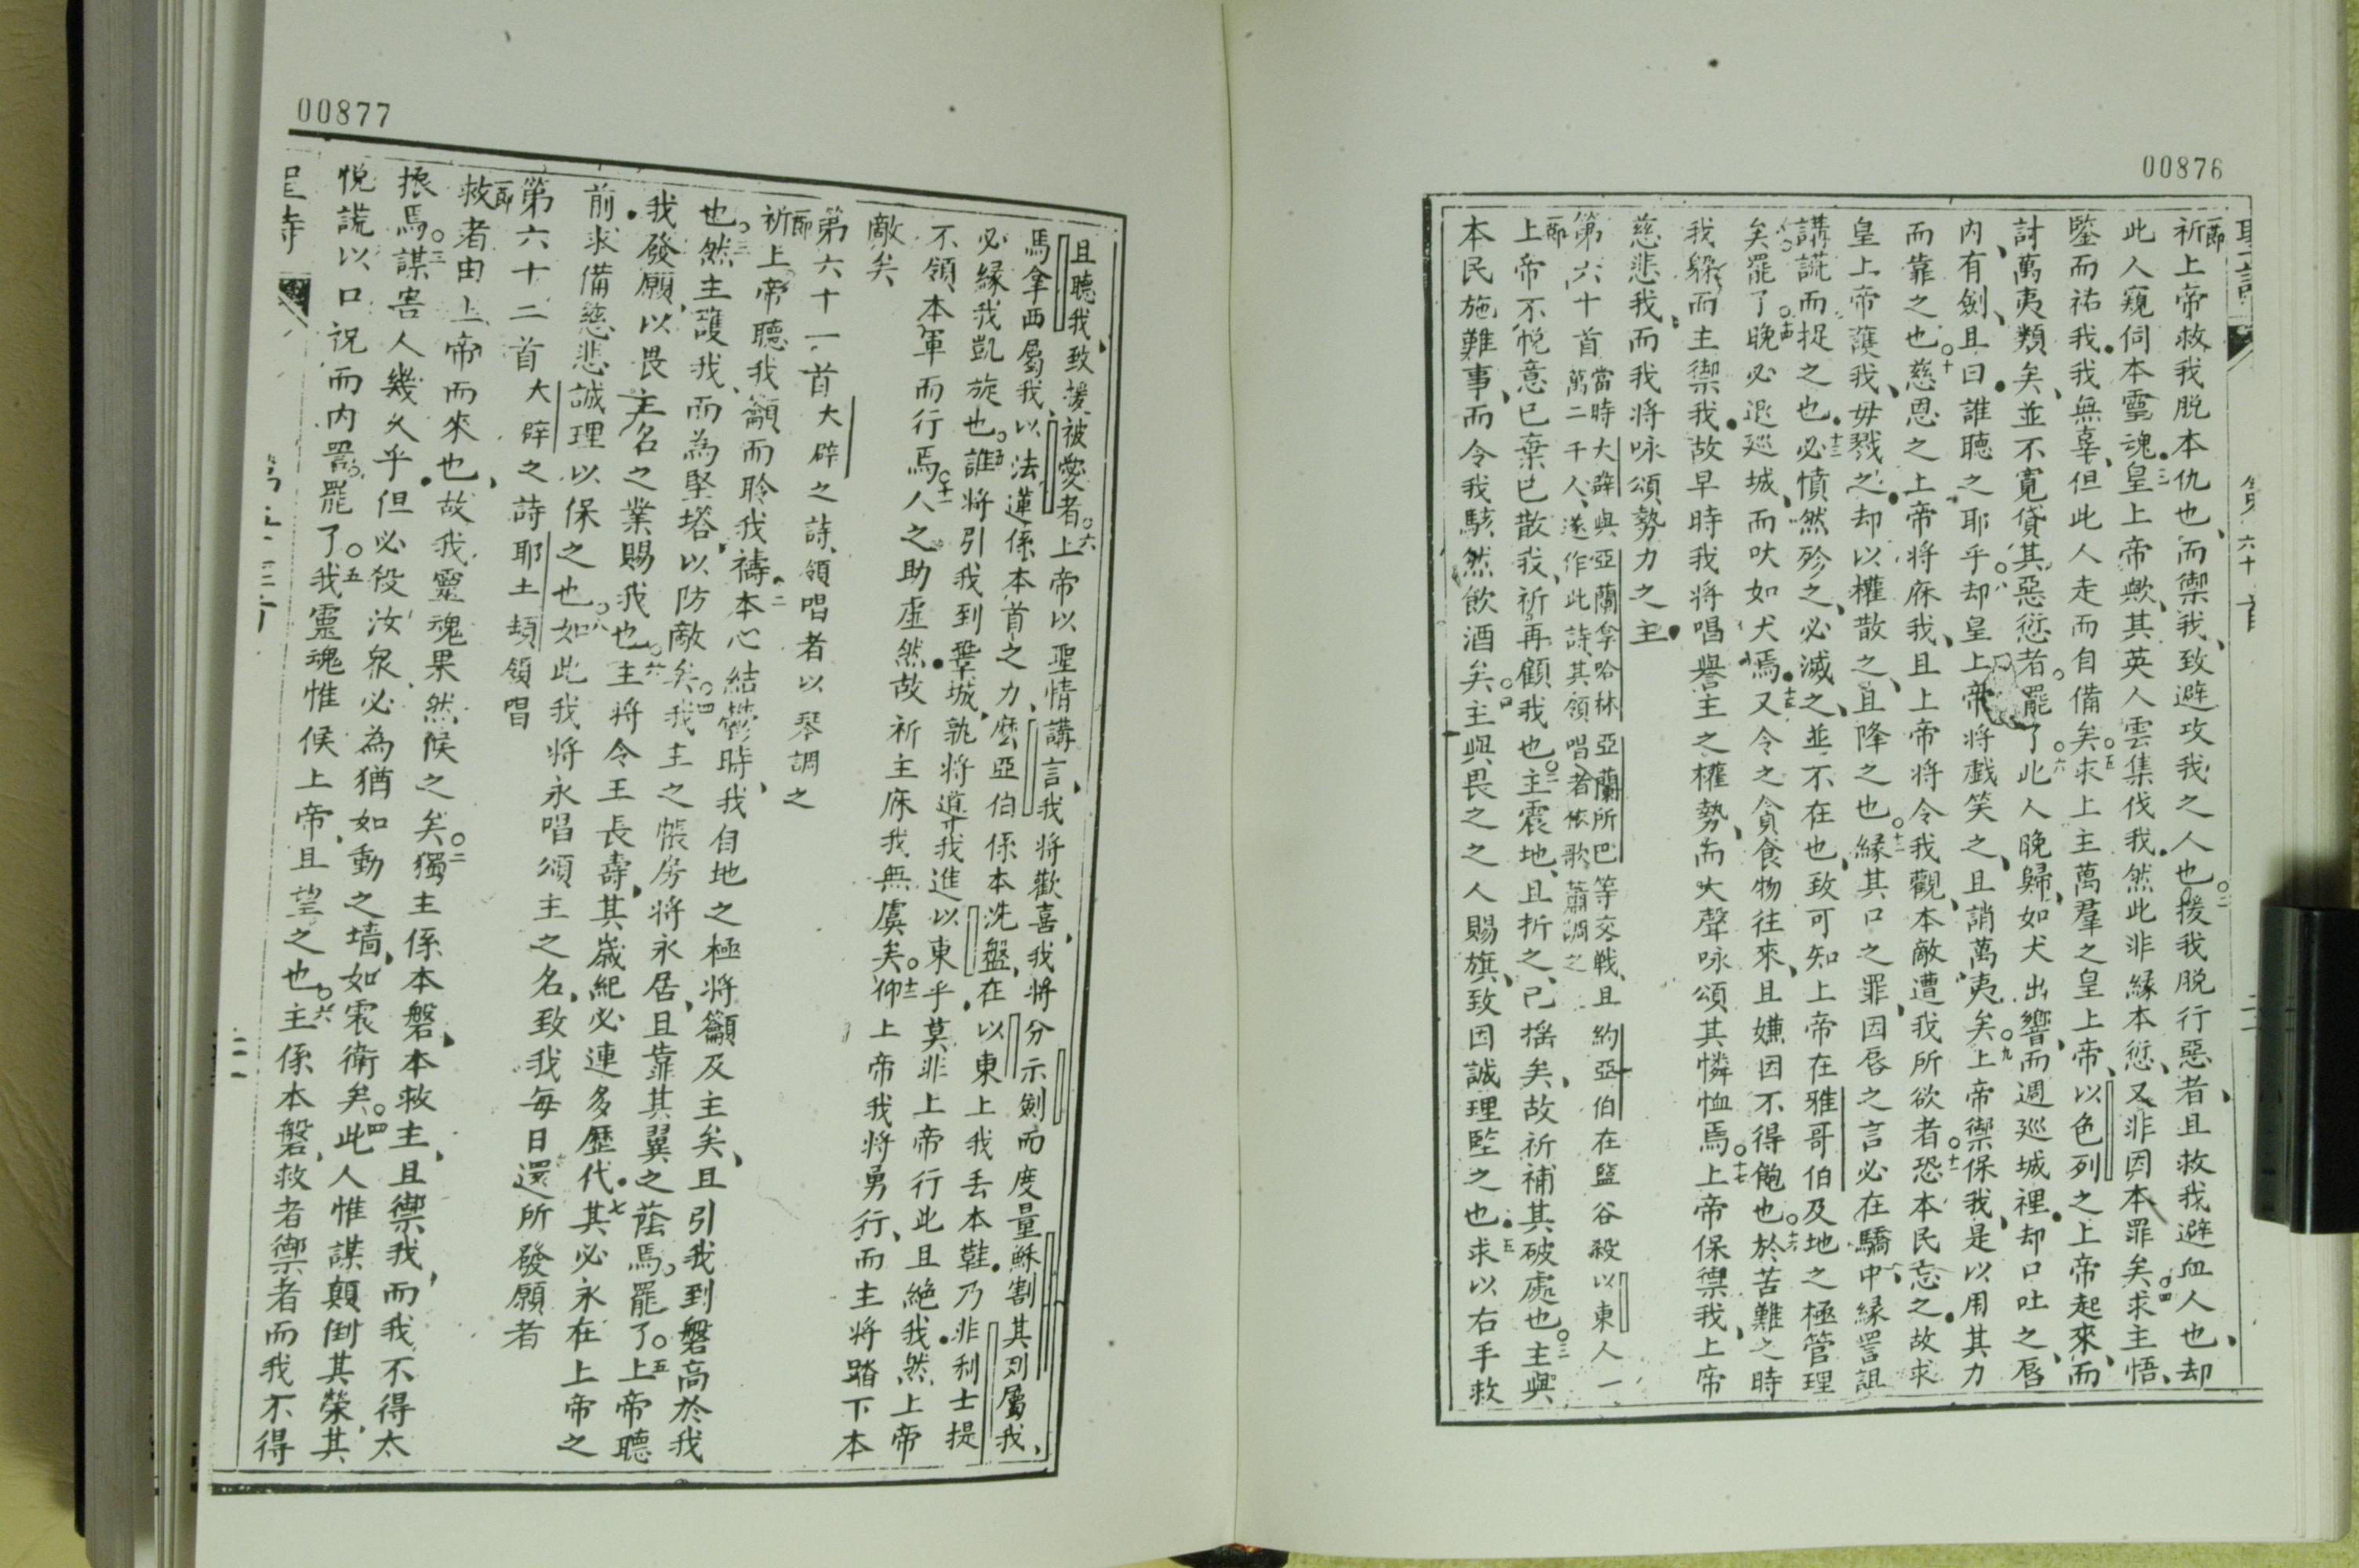 00876
聖詩
第六十首
節祈上帝救我脫本仇也、而禦我、致避攻我之人也、○二援我脫行惡者、且救我避血人也、却
此人窺伺本靈魂、○三皇上帝歟、其英人雲集伐我、然此非緣本愆、又非因本罪矣、○四求主悟、
鑒而祐我、我無辜、但此人走而自備矣、○五求上主萬羣之皇上帝、以色列之上帝起來、而
討萬夷類矣、並不寬貸其惡愆者、罷了、○六此人晚歸、如犬出響、而週巡城裡、却口吐之、唇
內有劍、且曰、誰聽之耶乎、○八却皇上帝將戲笑之、且誚萬夷矣、○九上帝禦保我、是以用其力
而靠之也、○十慈恩之上帝將庥我、且上帝將令我觀、本敵遭我所欲者、○十一恐本民忘之、故求
皇上帝護我、毋戮之、却以權散之、且降之也、○十二緣其口之罪、因唇之言、必在驕中、緣詈詛
講謊而捉之也、○十三必憤然殄之、必滅之、並不在也、致可知上帝在雅哥伯及地之極管理
矣、罷了、○十四晚必退廵城、而吠如犬焉、○十五又令之貪食物往來、且嫌因不得飽也、○十六於苦難之時
我躱而主禦我、故早時我將唱譽主之權勢、而大聲咏頌其憐恤焉、○十七上帝保禦我、上帝
慈悲我、而我將咏頌勢力之主、
第六十首 當時大辟與亞蘭拿哈林亞蘭所巴等交戰、且約亞伯在監谷殺以東人一
萬二千人、遂作此詩、其領唱者依歌蕭調之
節上帝不悅意已棄已散我、祈再顧我也、○二主震地、且折之、已搖矣、故祈補其破處也、○三主與
本民施難事、而令我駭然飲酒矣、○四主與畏之之人賜旗、致因誠理竪之也、○五求以右手救
00877
且聽我、致援被愛者、○六上帝以聖情講言、我將歡喜、我將分示劍而度量穌割、其列屬我、
馬拿西屬我、以法蓮係本首之力、麼亞伯係本洗盤、在以東上我丟本鞋、乃非利士提
必緣我凱旋也、○誰將引我到鞏城、孰將導我進以東乎、莫非上帝行此且絶我、然上帝
不領本軍而行焉、○十一人之助虛然、故祈主庥我無虞矣、○十二仰上帝我將勇行、而主將踏下本
敵矣
第六十一首 大辟之詩、領唱者以琴調之
節祈上帝聽我籲而聆我禱、○二本心結鬱時、我自地之極將籲及主矣、且引我到磐高於我
也、○三然主護我、而為堅塔、以防敵矣、○四我主之帳房將永居、且靠其翼之蔭焉、罷了、○五上帝聽
我發願、以畏主名之業賜我也、○六主將令王長壽、其歲紀必連多歷代、○七其必永在上帝之
前、求備慈悲誠理以保之也、○八如此我將永唱頌主之名、致我每日還所發願者
第六十二首 大辟之詩耶土頓領唱
節救者由上帝而來也、故我靈魂果然候之矣、○二獨主係本磐、本救主、且禦我、而我不得太
振焉、○三謀害人幾久乎、但必殺汝、眾必為猶如動之墻、如衮衛矣、○四此人惟謀顛倒其榮、其
悅謊以口祝而內詈、罷了、○五我靈魂惟候上帝、且望之也、○六主係本磐、救者、禦者、而我不得